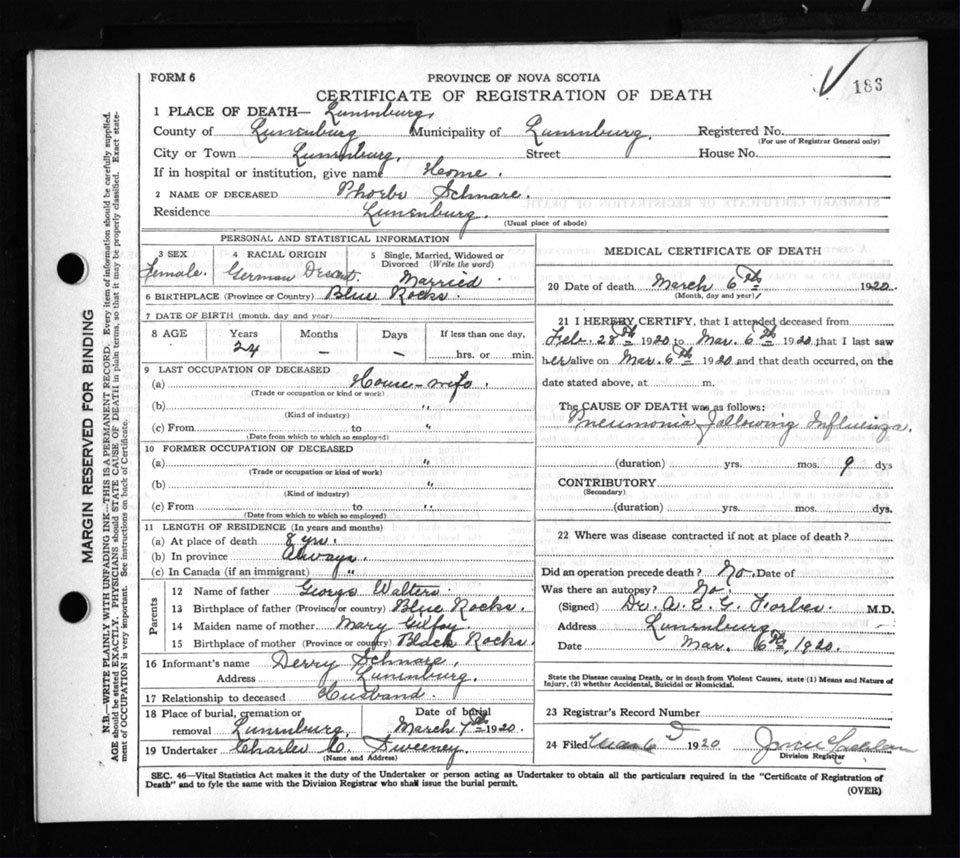 FORM 6
PROVINCE OF NOVA SCOTIA
183
CERTIFICATE OF REGISTRATION OF DEATH
1 PLACE OF DEATH— Lunenburg,
County of Lunenburg Municipality of Lunenburg. Registered No.
(For use of Registrar General only)
City or Town Lunenburg, Street House No.
If in hospital or institution, give name Home.
2 NAME OF DECEASED Phoebe Schnare.
Residence Lunenburg.
(Usual place of abode)
PERSONAL AND STATISTICAL INFORMATION
3 SEX
Female.
4 RACIAL ORIGIN
German Descent.
5 Single, Married, Widowed or Divorced (Write the word)
Married.
6 BIRTHPLACE (Province or Country) Blue Rocks.
7 DATE OF BIRTH (month, day and year)
8 AGE Years Months Days If less than one day,
24 – – hrs. or min.
9 LAST OCCUPATION OF DECEASED
(a) House-wife.
(Trade or occupation or kind or work)
(b) "
(Kind of industry)
(c) From to "
(Date from which to which so employed)
10 FORMER OCCUPATION OF DECEASED
(a) "
(Trade or occupation or kind of work)
(b) "
(Kind of industry)
(c) From to "
(Date from which to which so employed)
11 LENGTH OF RESIDENCE (In years and months)
(a) At place of death 8 yrs.
(b) In province Always.
(c) In Canada (if an immigrant) "
Parents
12 Name of father George Walters.
13 Birthplace of father (Province or country) Blue Rocks.
14 Maiden name of mother Mary Gilfoy
15 Birthplace of mother (Province or country) Black Rocks
16 Informant's name Derry Schnare,
Address Lunenburg.
17 Relationship to deceased Husband.
18 Place of burial, cremation or removal Lunenburg, Date of burial March 7th 1920.
19 Undertaker Charles C. Sweeney.
(Name and Address)
MEDICAL CERTIFICATE OF DEATH
20 Date of death March 6th 1920.
(Month, day and year)
21 I HEREBY CERTIFY, that I attended deceased from
Feb. 28th 1920 to Mar. 6th 1920 that I last saw
her alive on Mar. 6th 1920 and that death occurred, on the
date stated above, at m.
The CAUSE OF DEATH was as follows:
Pneumonia following Influenza.
(duration) yrs. mos. 9 dys
CONTRIBUTORY
(Secondary)
(duration) yrs. mos. dys.
22 Where was disease contracted if not at place of death?
Did an operation precede death? No. Date of
Was there an autopsy? No.
(Signed) Dr. A. E. G. Forbes. M.D.
Address Lunenburg
Date Mar. 6th, 1920.
State the Disease causing Death, or in death from Violent Causes, state (1) Means and Nature of
Injury, (2) whether Accidental, Suicidal or Homicidal.
23 Registrar's Record Number
24 Filed 6 1920
Division Registrar
SEC. 46—Vital Statistics Act makes it the duty of the Undertaker or person acting as Undertaker to obtain all the particulars required in the "Certificate of Registration of
Death" and to fyle the same with the Division Registrar who shall issue the burial permit.
(OVER)
MARGIN RESERVED FOR BINDING
N.B.—WRITE PLAINLY WITH UNFADING INK—THIS IS A PERMANENT RECORD. Every item of information should be carefully supplied.
AGE should be stated EXACTLY. PHYSICIANS should STATE CAUSE OF DEATH in plain terms, so that it may be properly classified. Exact state-
ment of OCCUPATION is very important. See instructions on back of Certificate.